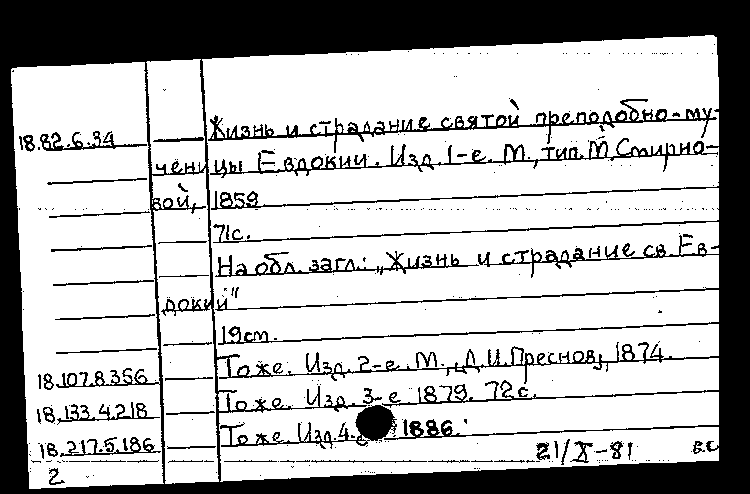 18.82.6.34 Жизнь и страдание святой преподобно-му-
ченицы Евдокии. Изд. 1-е. М., тип. М. Смирно-
вой, 1859
71с.
На обл. загл.: „Жизнь и страдание св. Ев-
докии"
19 см.
18.107.8.356 То же. Изд. 2-е. М., „Д.И. Преснов", 1874.
18.133.4.218 То же. Изд. 3-е 1879. 72 с.
18.217.5.186 То же. Изд. 4. 1886.
21/X-81
2